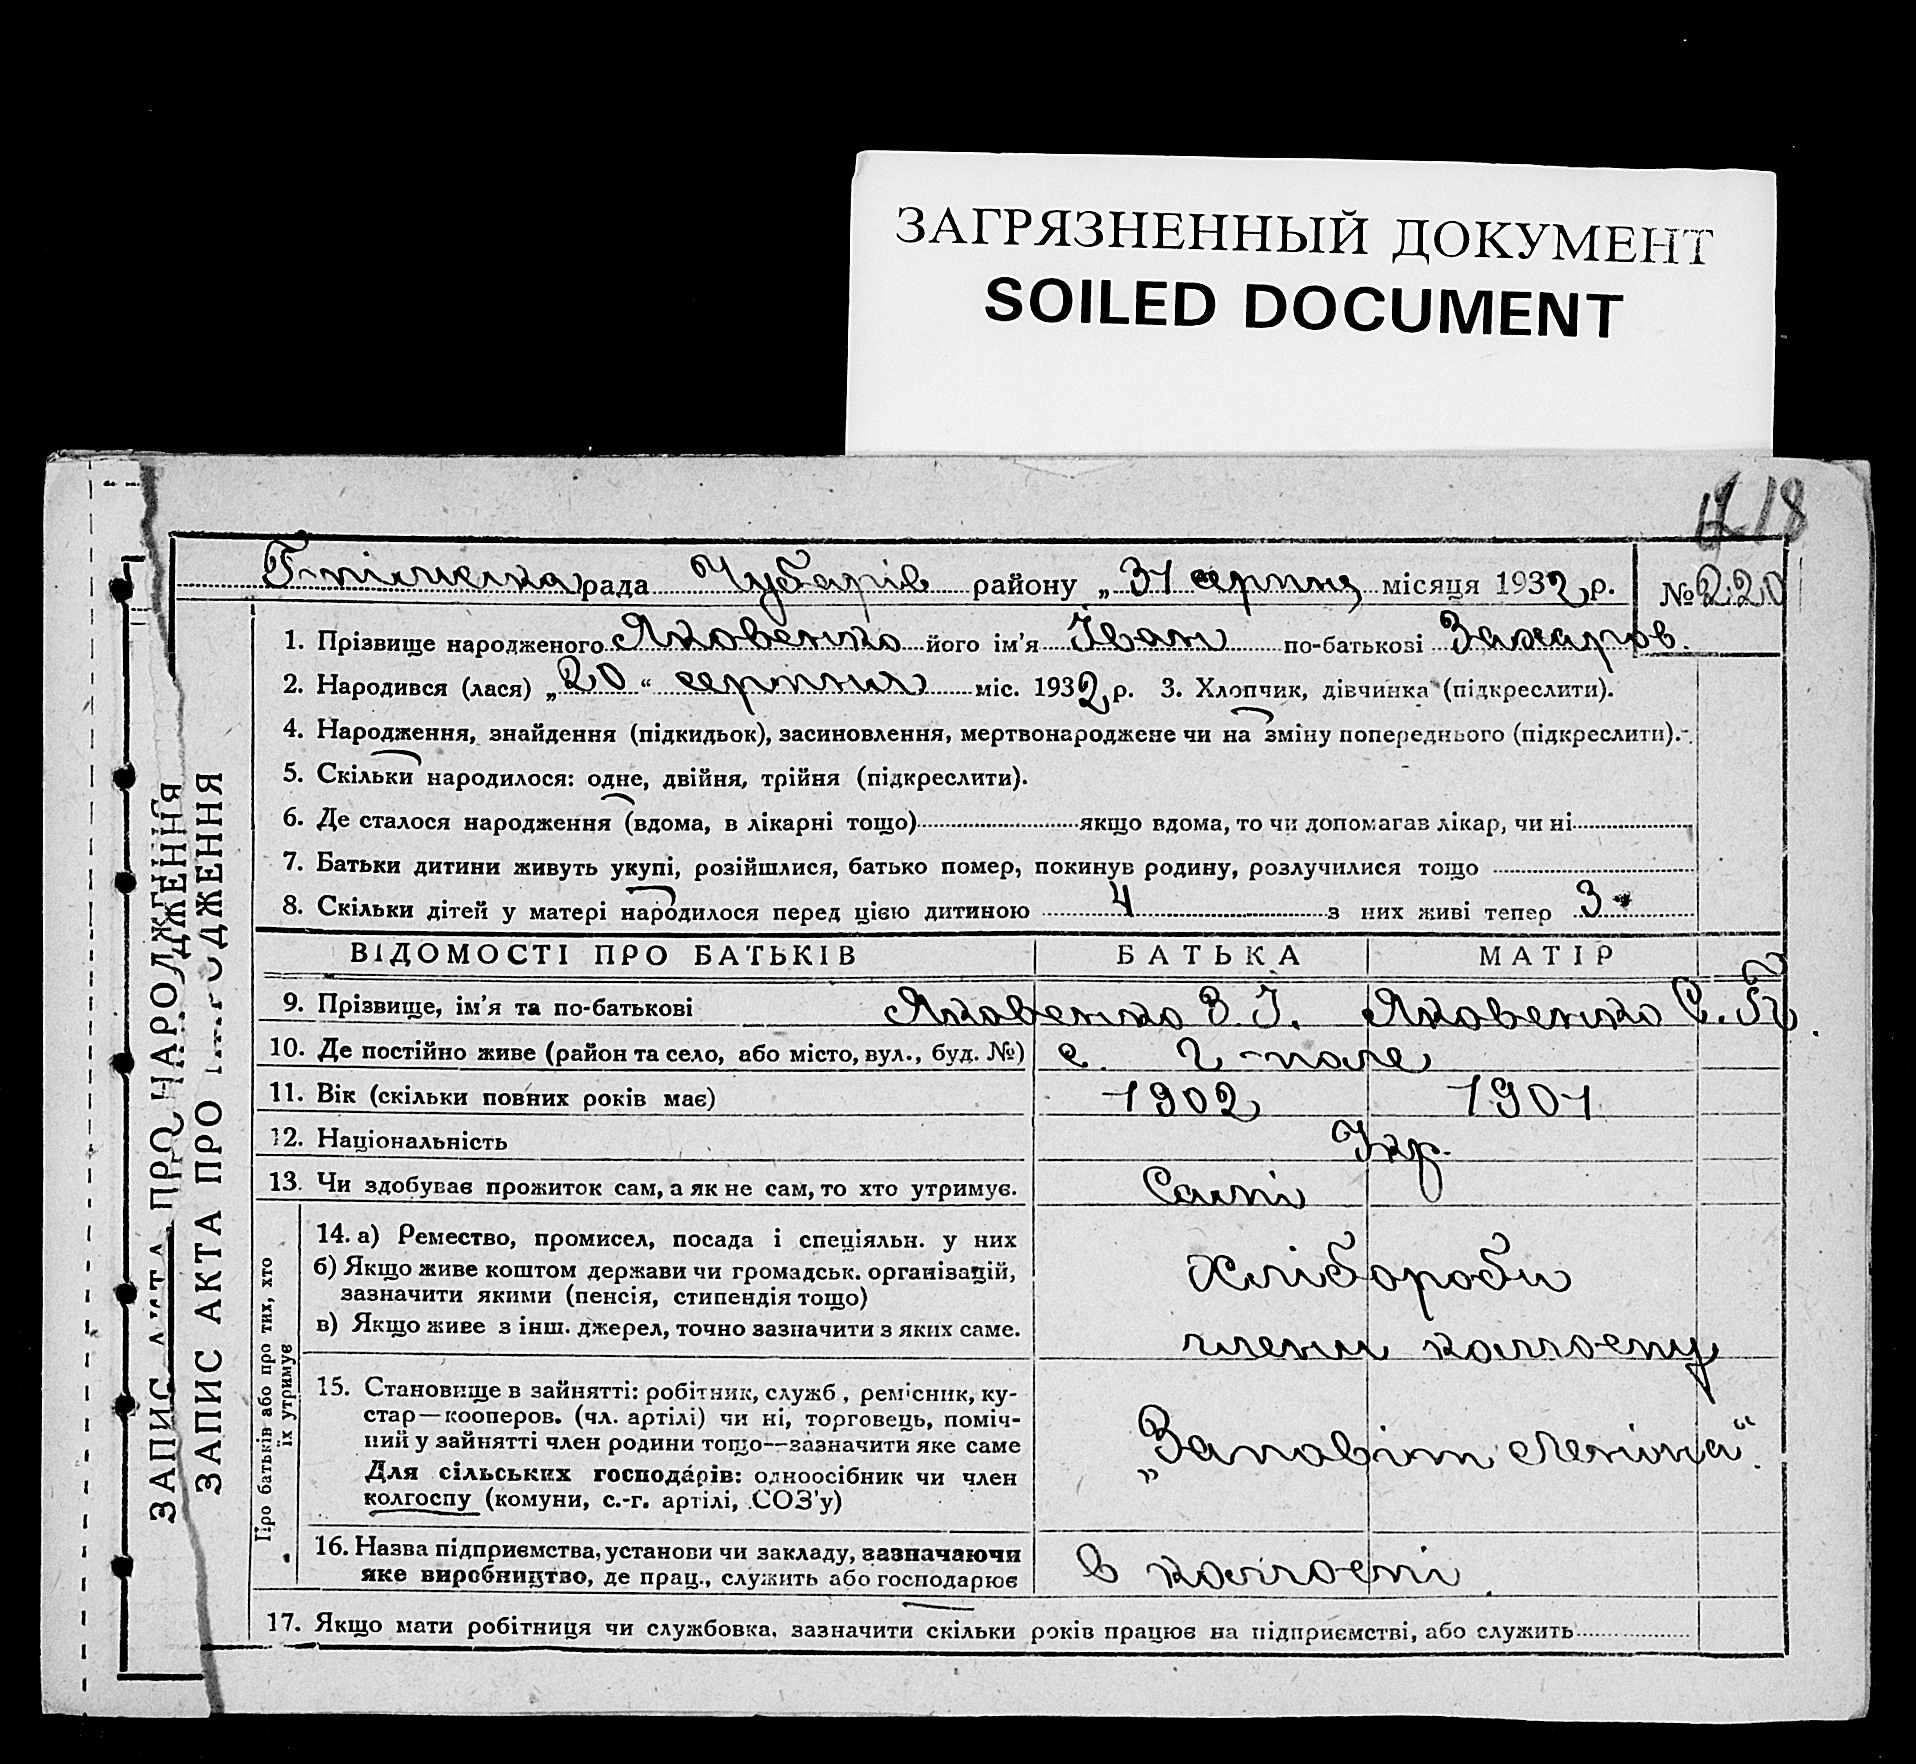 ЗАГРЯЗНЕННЫЙ ДОКУМЕНТ
SOILED DOCUMENT
18
рада Чубарів району „31 серпня місяця 1932 р. № 220
1. Прізвище народженого Яковенко його ім'я Іван по-батькові Захаров.
2. Народився (лася) „20“ серпня міс. 1932 р. 3. Хлопчик, дівчинка (підкреслити).
4. Народження, знайдення (підкидьок), засиновлення, мертвонароджене чи на зміну попереднього (підкреслити).
5. Скільки народилося: одне, двійня, трійня (підкреслити).
6. Де сталося народження (вдома, в лікарні тощо) якщо вдома, то чи допомагав лікар, чи ні
7. Батьки дитини живуть укупі, розійшлися, батько помер, покинув родину, розлучилися тощо
8. Скільки дітей у матері народилося перед цією дитиною 4 з них живі тепер 3
ВІДОМОСТІ ПРО БАТЬКІВ БАТЬКА МАТІР
9. Прізвище, ім'я та по-батькові Яковенко З. І. Яковенко С.
10. Де постійно живе (район та село, або місто, вул., буд. №) с. Г-поле
11. Вік (скільки повних років має) 1902 1901
12. Національність Укр.
13. Чи здобуває прожиток сам, а як не сам, то хто утримує. Самі
Про батьків або про тих, хто
їх утримує
14. а) Ремество, промисел, посада і спеціяльн. у них
б) Якщо живе коштом держави чи громадськ. організацій,
зазначити якими (пенсія, стипендія тощо)
в) Якщо живе з інш. джерел, точно зазначити з яких саме.
хлібороби
члени колгоспу
15. Становище в зайнятті: робітник, служб., ремісник, ку-
стар—кооперов. (чл. артілі) чи ні, торговець, поміч-
ний у зайнятті член родини тощо—зазначити яке саме
Для сільських господарів: одноосібник чи член
колгоспу (комуни, с.-г. артілі, СОЗ'у)
„Заповіт Леніна“.
16. Назва підприємства, установи чи закладу, зазначаючи
яке виробництво, де прац., служить або господарює
в колгоспі.
17. Якщо мати робітниця чи службовка, зазначити скільки років працює на підприємстві, або служить
ЗАПИС АКТА ПРО НАРОДЖЕННЯ
ЗАПИС АКТА ПРО НАРОДЖЕННЯ